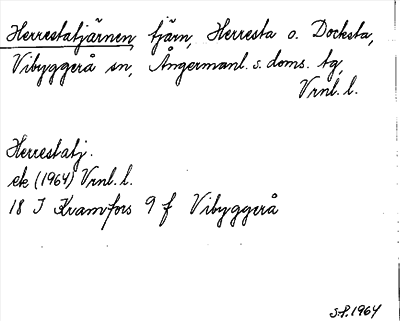 Herrestatjärnen, tjärn, Herresta o. Docksta,
Vibyggerå sn, Ångermanl. s. doms. tg,
Vrnl. l.
Herrestatj.
ek (1964) Vrnl. l.
18 I Kramfors 9 f Vibyggerå
S.P. 1964